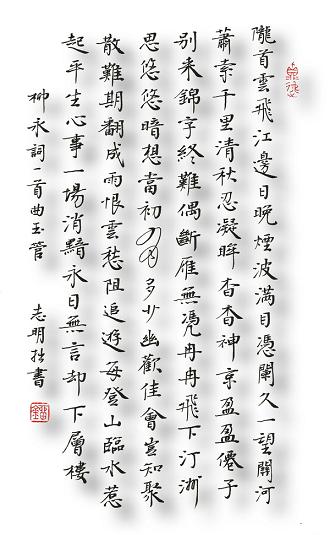 隴首雲飛江邊日晚煙波滿目憑闌久一望關河
蕭索千里清秋忍凝眸杳杳神京盈盈僊子
別來錦字終難偶斷雁無凭冉冉飛下汀洲
思悠悠暗想當初有多少幽歡佳會豈知聚
散難期翻成雨恨雲愁阻追遊每登山臨水惹
起平生心事一場消黯永日無言却下層樓
柳永詞一首曲玉管 志明拙書